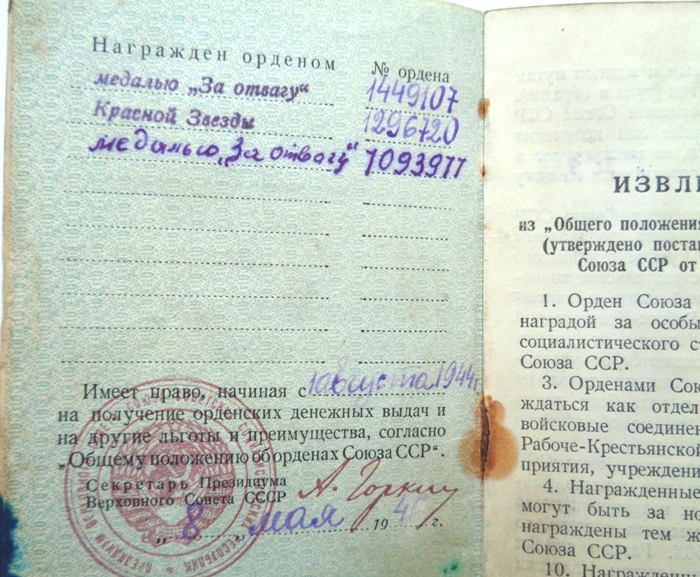 Награжден орденом № ордена
медалью „За отвагу“ 1449107
Красной Звезды 1296720
медалью „За отвагу“ 1093977
Имеет право, начиная с 1 августа 1944 г.
на получение орденских денежных выдач и
на другие льготы и преимущества, согласно
„Общему положению об орденах Союза ССР“.
Секретарь Президиума
Верховного Совета СССР А. Горкин
„8“ мая 19 г.
ИЗВЛ
из „Общего положения
(утверждено постан
Союза ССР от
1. Орден Союза
наградой за особы
социалистического с
Союза ССР.
3. Орденами Сою
ждаться как отдел
войсковые соединен
Рабоче-Крестьянской
приятия, учреждени
4. Награжденные
могут быть за но
награждены тем ж
Союза ССР.
10. Награжденн